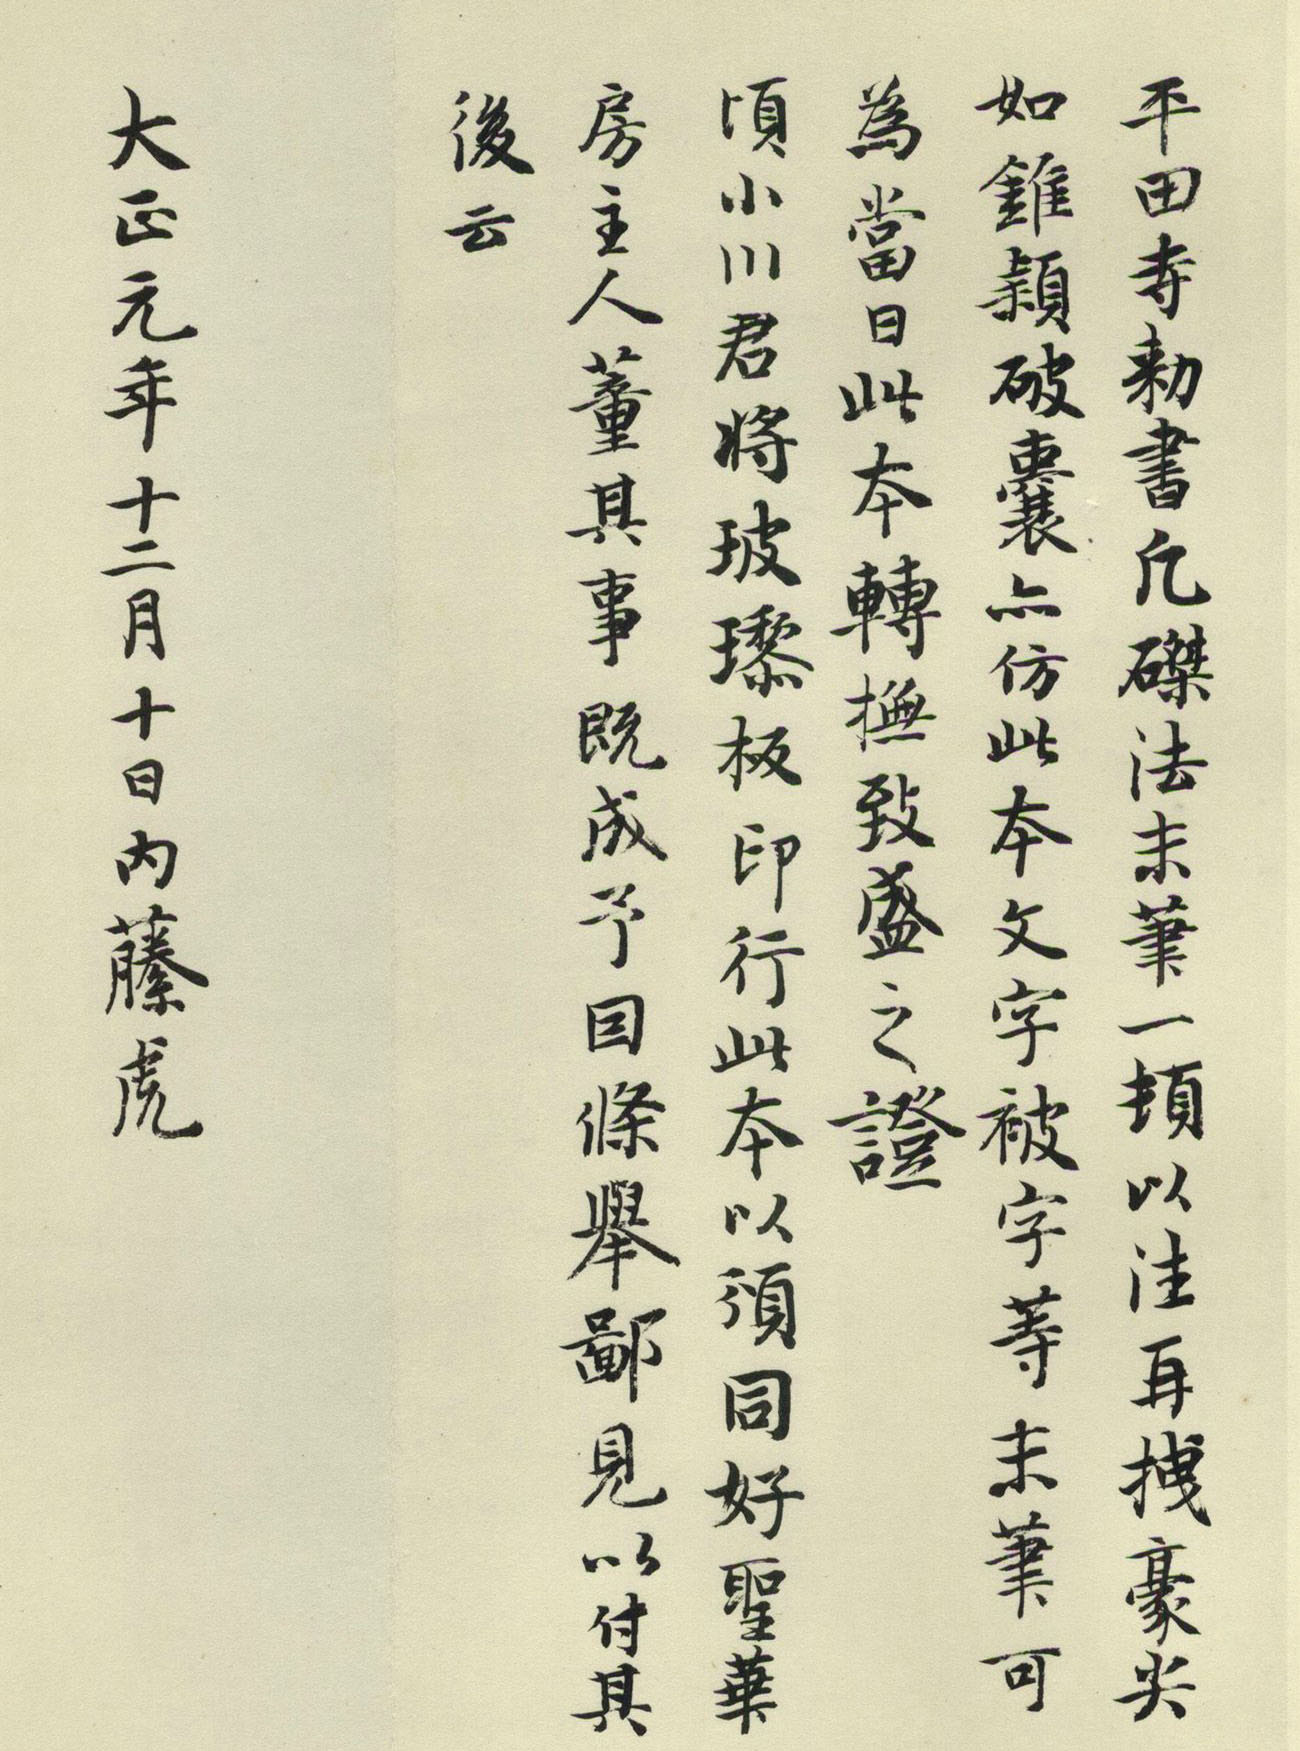 平田寺勅書凡磔法末筆一頓以注再拽豪尖
如錐穎破囊亦仿此本文字被字等末筆可
為當日此本轉撫致盛之證
頃小川君將玻瓈板印行此本以頒同好聖華
房主人董其事既成予因條舉鄙見以付其
後云
大正元年十二月十日内藤虎